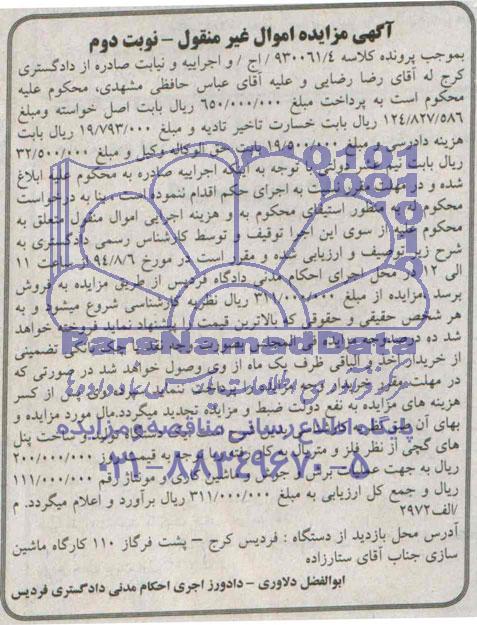 آگهی مزایده اموال غیر منقول - نوبت دوم
بموجب پرونده کلاسه ۹۳۰۰۶۱/٤ /اج /و اجراییه و نیابت صادره از دادگستری
کرج له آقای رضا رضایی و علیه آقای عباس حافظی مشهدی، محکوم علیه
محکوم است به پرداخت مبلغ ۶۵۰/۰۰۰/۰۰۰ ریال بابت اصل خواسته ومبلغ
۱۲٤/۸۲۷/۵۸۶ ریال بابت خسارت تاخیر تادیه و مبلغ ۱۹/۷۹۳/۰۰۰ ریال بابت
هزینه دادرسی و مبلغ ۱۹/۵۰۰/۰۰۰ بابت حق الوکاله وکیل و مبلغ ۳۲/۵۰۰/۰۰۰
ریال بابت نیم عشر دولتی با توجه به اینکه اجراییه صادره به محکوم علیه ابلاغ
شده و در مهلت مقرر نسبت به اجرای حکم اقدام ننموده است ، بنا به درخواست
محکوم له به منظور استیفای محکوم به و هزینه اجرایی اموال منقول متعلق به
محکوم علیه از سوی این اجرا توقیف و توسط کارشناس رسمی دادگستری به
شرح زیر توصیف و ارزیابی شده و مقرر است در مورخ ۹٤/۸/۶ از ساعت ۱۱
الی ۱۲ در محل اجرای احکام مدنی دادگاه فردیس از طریق مزایده به فروش
برسد .مزایده از مبلغ ۳۱۱/۰۰۰/۰۰۰ ریال نظریه کارشناسی شروع میشود و به
هر شخص حقیقی و حقوقی که بالاترین قیمت را پیشنهاد نماید فروخته خواهد
شد ده درصدوجه مزایده فی المجلس بصورت وجه نقد یا چک بانکی تضمینی
از خریدار اخذ و الباقی ظرف یک ماه از وی وصول خواهد شد در صورتی که
در مهلت مقرر خریدار وجه مزایده را پرداخت ننماید سپرده وی پس از کسر
هزینه های مزایده به نفع دولت ضبط و مزایده تجدید میگردد.مال مورد مزایده و
بهای آن طبق نظریه کارشناسی بدین شرح است دستگاه تولید و ساخت پنل
های گچی از نظر فلز و متریال به کار رفته با توجه به قیمت روز ۲۰۰/۰۰۰/۰۰۰
ریال به جهت عملیات برش و جوش و ماشین کاری و مونتاژ رقم ۱۱۱/۰۰۰/۰۰۰
ریال و جمع کل ارزیابی به مبلغ ۳۱۱/۰۰۰/۰۰۰ ریال برآورد و اعلام میگردد. م
/الف۲۹۷۲
آدرس محل بازدید از دستگاه : فردیس کرج - پشت فرگاز ۱۱۰ کارگاه ماشین
سازی جناب آقای ستارزاده
ابوالفضل دلاوری - دادورز اجری احکام مدنی دادگستری فردیس
ParsNamadData
پایگاه اطلاع رسانی مناقصه و مزایده
۰۲۱-۸۸۳۴۹۶۷۰-۵